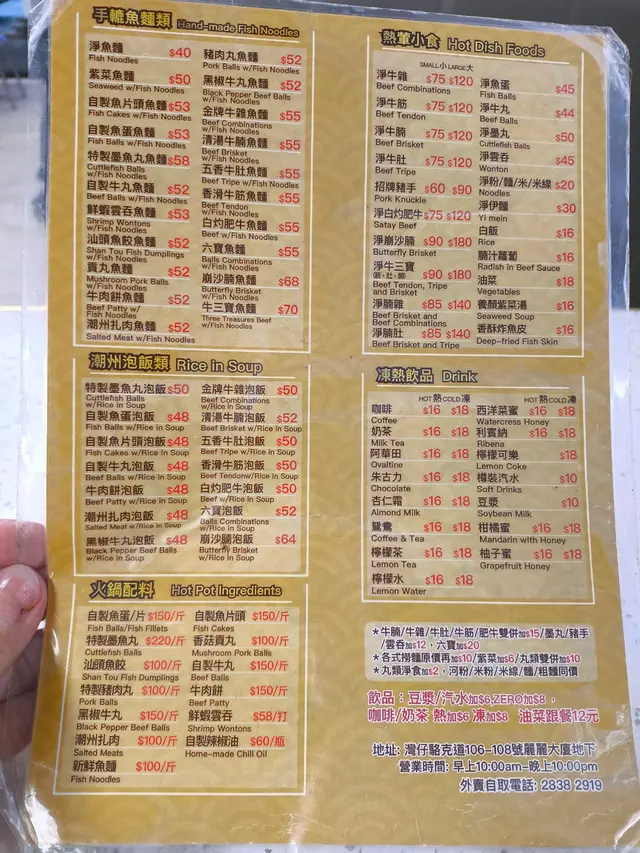 手轆魚麵類 Hand-made Fish Noodles
淨魚麵 $40
Fish Noodles
紫菜魚麵 $50
Seaweed w/Fish Noodles
自製魚片頭魚麵 $53
Fish Cakes w/Fish Noodles
自製魚蛋魚麵 $53
Fish Balls w/Fish Noodles
特製墨魚丸魚麵 $58
Cuttlefish Balls
w/Fish Noodles
自製牛丸魚麵 $52
Beef Balls w/Fish Noodles
鮮蝦雲吞魚麵 $53
Shrimp Wontons
w/Fish Noodles
汕頭魚餃魚麵 $52
Shan Tou Fish Dumplings
w/Fish Noodles
貢丸魚麵 $52
Mushroom Pork Balls
w/Fish Noodles
牛肉餅魚麵 $52
Beef Patty w/
Fish Noodles
潮州扎肉魚麵 $52
Salted Meat w/Fish Noodles
豬肉丸魚麵 $52
Pork Balls w/Fish Noodles
黑椒牛丸魚麵 $52
Black Pepper Beef Balls
w/Fish Noodles
金牌牛雜魚麵 $55
Beef Combinations
w/Fish Noodles
清湯牛腩魚麵 $55
Beef Brisket
w/Fish Noodles
五香牛肚魚麵 $55
Beef Tripe
w/Fish Noodles
香滑牛筋魚麵 $55
Beef Tendon
w/Fish Noodles
白灼肥牛魚麵 $55
Beef w/Fish Noodles
六寶魚麵 $55
Balls Combinations
w/Fish Noodles
崩沙腩魚麵 $68
Butterfly Brisket
w/Fish Noodles
牛三寶魚麵 $70
Three Treasures Beef
w/Fish Noodles
潮州泡飯類 Rice in Soup
特製墨魚丸泡飯 $50
Cuttlefish Balls
w/Rice in Soup
自製魚蛋泡飯 $48
Fish Balls w/Rice in Soup
自製魚片頭泡飯 $48
Fish Cakes w/Rice in Soup
自製牛丸泡飯 $48
Beef Balls w/Rice in Soup
牛肉餅泡飯 $48
Beef Patty w/Rice in Soup
潮州扎肉泡飯 $48
Salted Meat w/Rice in Soup
黑椒牛丸泡飯 $48
Black Pepper Beef Balls
w/Rice in Soup
金牌牛雜泡飯 $50
Beef Combinations
w/Rice in Soup
清湯牛腩泡飯 $52
Beef Brisket w/Rice in Soup
五香牛肚泡飯 $50
Beef Tripe w/Rice in Soup
香滑牛筋泡飯 $50
Beef Tendonw/Rice in Soup
白灼肥牛泡飯 $50
Beef w/Rice in Soup
六寶泡飯 $52
Balls Combinations
w/Rice in Soup
崩沙腩泡飯 $64
Butterfly Brisket
w/Rice in Soup
火鍋配料 Hot Pot Ingredients
自製魚蛋/片 $150/斤
Fish Balls/Fish Fillets
特製墨魚丸 $220/斤
Cuttlefish Balls
汕頭魚餃 $100/斤
Shan Tou Fish Dumplings
特製豬肉丸 $100/斤
Pork Balls
黑椒牛丸 $150/斤
Black Pepper Beef Balls
潮州扎肉 $100/斤
Salted Meats
新鮮魚麵 $100/斤
Fish Noodles
自製魚片頭 $150/斤
Fish Cakes
香菇貢丸 $150/斤
Mushroom Pork Balls
自製牛丸 $150/斤
Beef Balls
牛肉餅 $150/斤
Beef Patty
鮮蝦雲吞 $58/打
Shrimp Wontons
自製辣椒油 $60/瓶
Home-made Chili Oil
熱葷小食 Hot Dish Foods
SMALL 小 LARGE 大
淨牛雜 $75 $120
Beef Combinations
淨牛筋 $75 $120
Beef Tendon
淨牛腩 $75 $120
Beef Brisket
淨牛肚 $75 $120
Beef Tripe
招牌豬手 $60 $90
Pork Knuckle
淨白灼肥牛 $75 $120
Satay Beef
淨崩沙腩 $90 $180
Butterfly Brisket
淨牛三寶 $90 $180
(筋, 肚, 腩)
Beef Tendon, Tripe
and Brisket
淨腩雜 $85 $140
Beef Brisket and
Beef Combinations
淨腩肚 $85 $140
Beef Brisket and Tripe
淨魚蛋 $45
Fish Balls
淨牛丸 $44
Beef Balls
淨墨丸 $50
Cuttlefish Balls
淨雲吞 $45
Wonton
淨粉/麵/米/米線 $20
Noodles
淨伊麵 $30
Yi mein
白飯 $16
Rice
腩汁蘿蔔 $16
Radish in Beef Sauce
油菜 $18
Vegetables
養顏紫菜湯 $16
Seaweed Soup
香酥炸魚皮 $16
Deep-fried Fish Skin
凍熱飲品 Drink
HOT 熱 COLD 凍
咖啡 $16 $18
Coffee
奶茶 $16 $18
Milk Tea
阿華田 $16 $18
Ovaltine
朱古力 $16 $18
Chocolate
杏仁霜 $16 $18
Almond Milk
鴛鴦 $16 $18
Coffee & Tea
檸檬茶 $16 $18
Lemon Tea
檸檬水 $16 $18
Lemon Water
HOT 熱 COLD 凍
西洋菜蜜 $16 $18
Watercress Honey
利賓納 $16 $18
Ribena
檸檬可樂 $18
Lemon Coke
樽裝汽水 $10
Soft Drinks
豆漿 $10
Soybean Milk
柑橘蜜 $16 $18
Mandarin with Honey
柚子蜜 $16 $18
Grapefruit Honey
*牛腩/牛雜/牛肚/牛筋/肥牛雙併加$15/墨丸/豬手
/雲吞加$12，六寶加$20
*各式撈麵原價再加$10/紫菜加$6/丸類雙併加$10
*丸類淨食加$2，河粉/米粉/米線/麵/粗麵同價
飲品：豆漿/汽水加$6, ZERO加$8，
咖啡/奶茶 熱加$6 凍加$8 油菜跟餐12元
地址: 灣仔駱克道106-108號麗麗大廈地下
營業時間: 早上10:00am-晚上10:00pm
外賣自取電話: 2838 2919